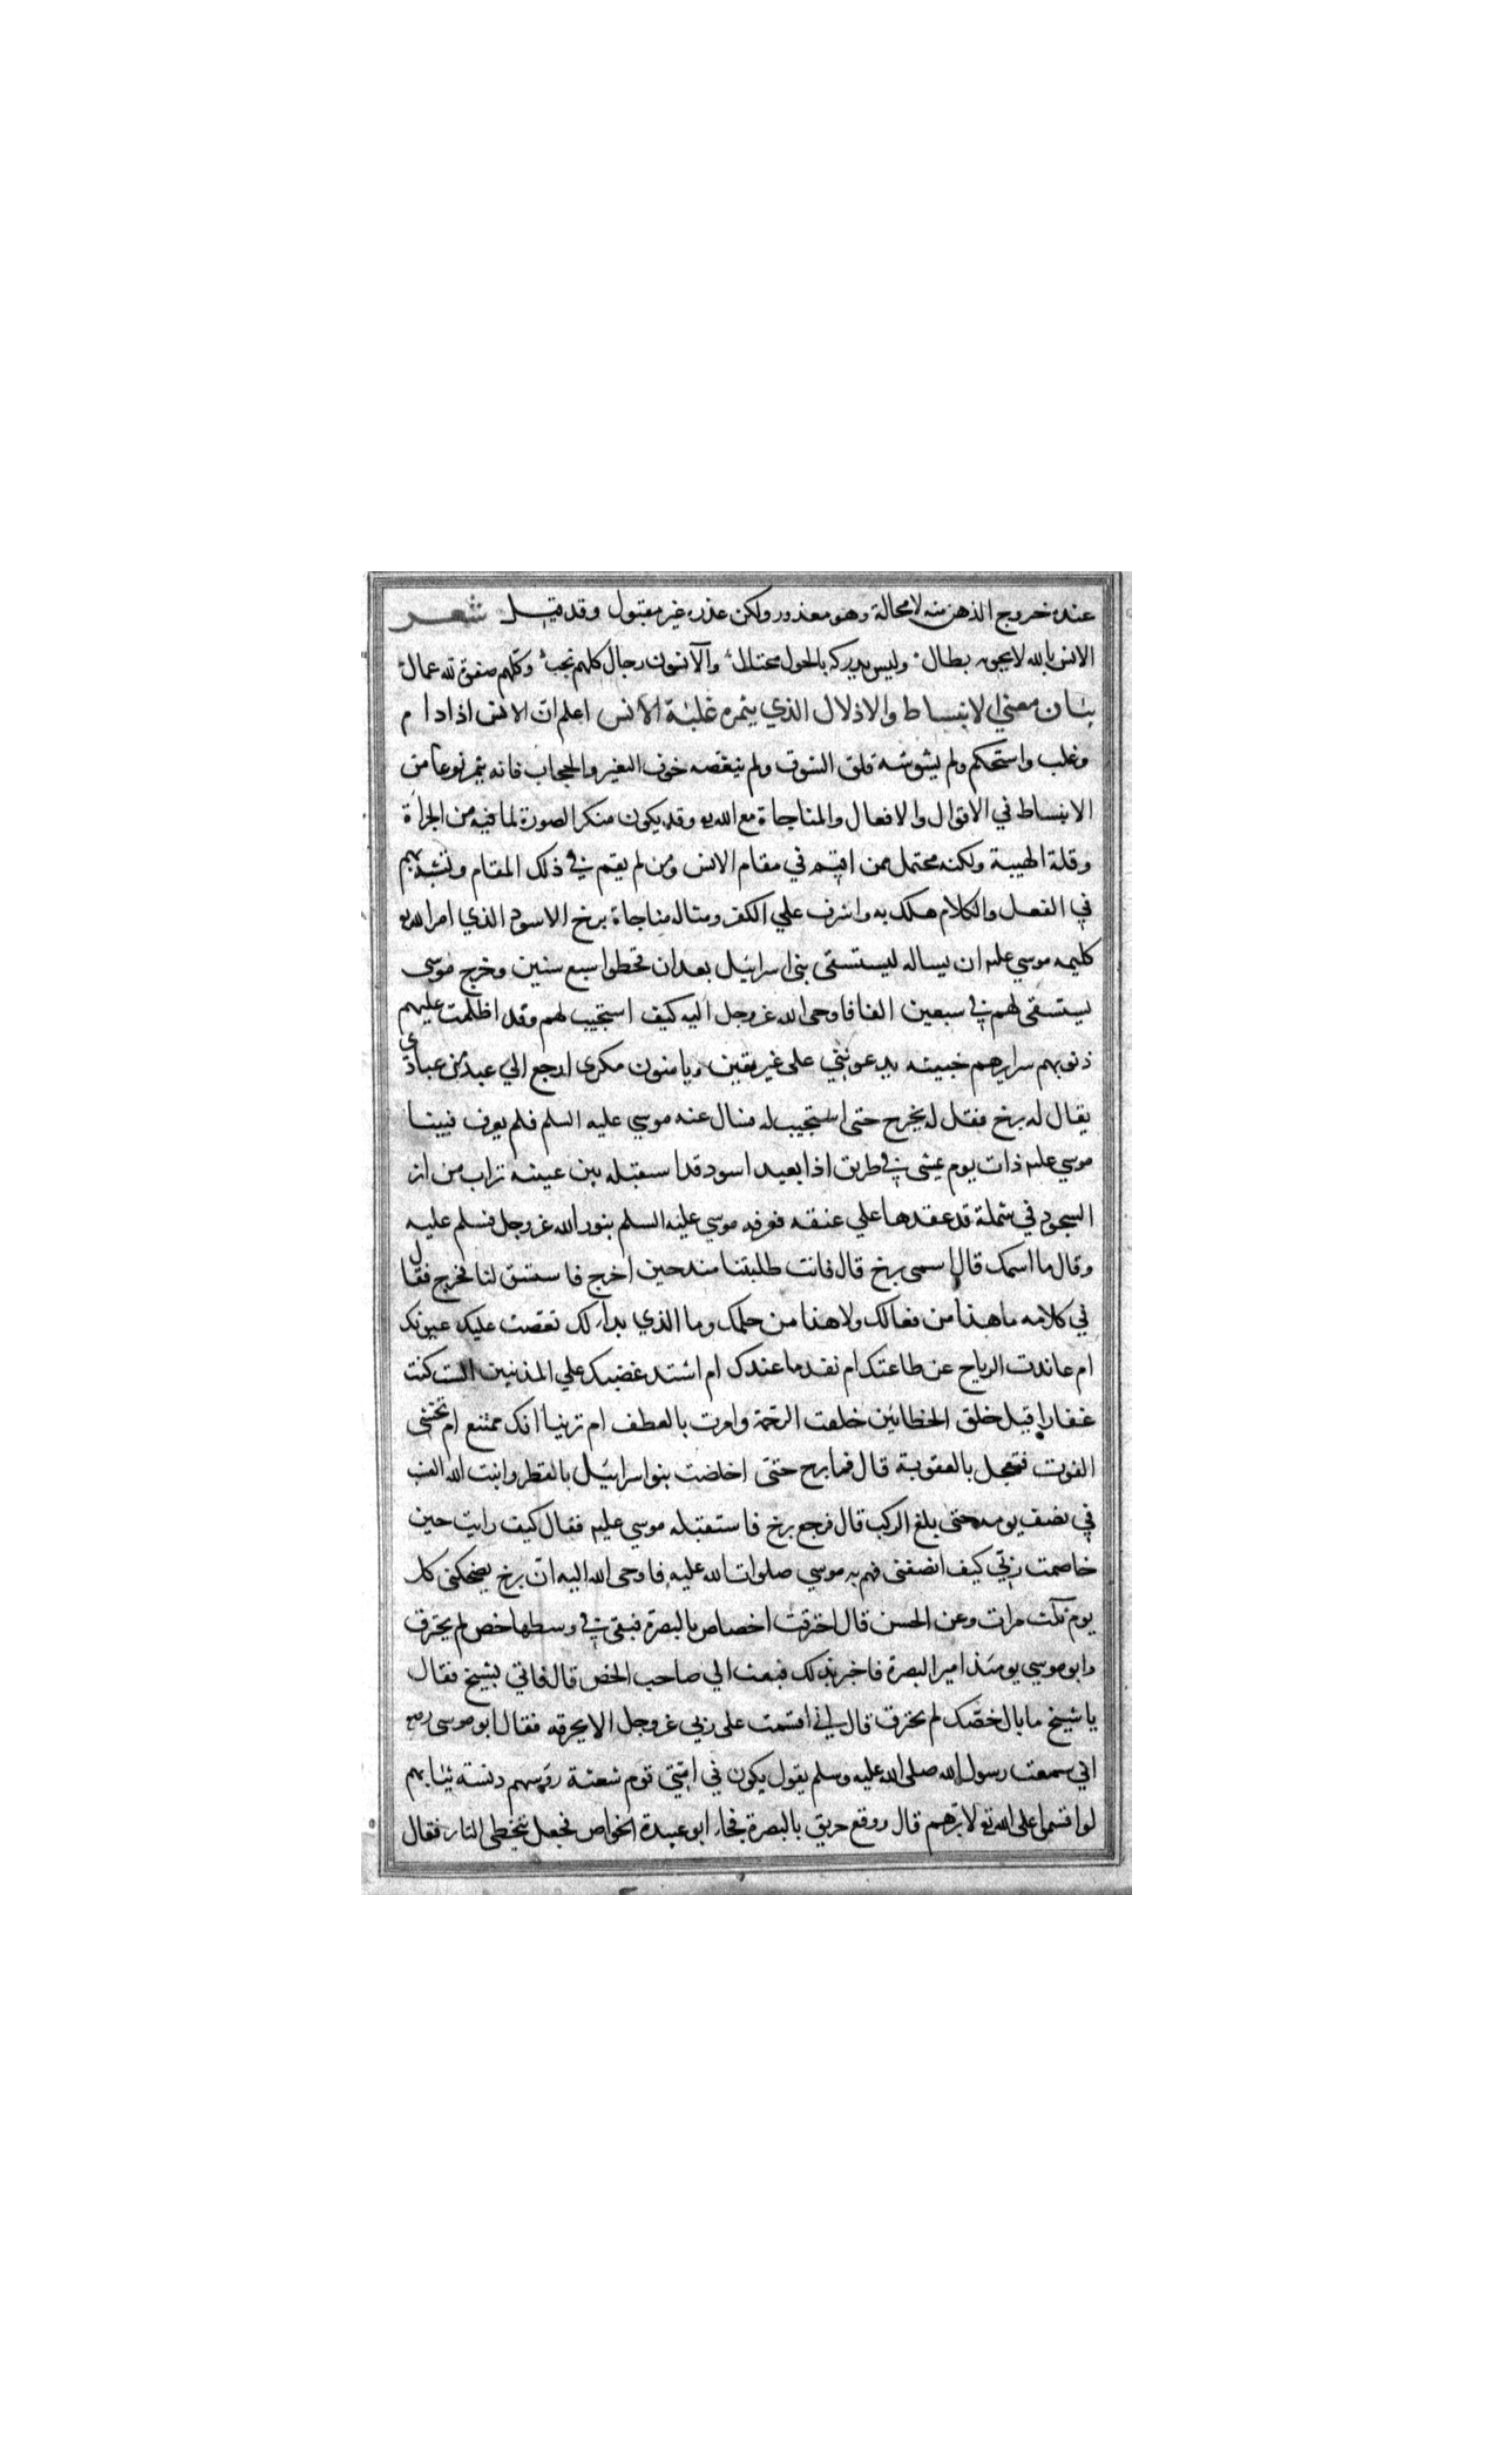 عنده خروج الذهن منه لا محالة وهو معذور ولكن عذره غير مقبول وقد قيل شعر
الانس بالله لا يحويه بطال وليس يدركه بالحول محتال والآنسون رجال كلهم نجب وكلهم صفوة لله عمال
بيان معنى الانبساط والادلال الذي يثمره غلبة الانس اعلم ان الانس اذا دام
وغلب واستحكم ولم يشوشه قلق الشوق ولم ينغصه خوف التغير والحجاب فانه يثمر نوعا من
الانبساط في الاقوال والافعال والمناجاة مع الله تع وقد يكون منكر الصورة لما فيه من الجراة
وقلة الهيبة ولكنه محتمل ممن اقيم في مقام الانس ومن لم يقم في ذلك المقام وتشبه بهم
في الفعل والكلام هلك به واشرف علي الكفر ومثاله مناجاة برخ الاسود الذي امر الله تع
كليمه موسي عليه ان يساله ليستسقى بنى اسرائيل بعد ان قحطوا سبع سنين وخرج موسى
يستسقى لهم في سبعين الفا فاوحى الله عز وجل اليه كيف استجيب لهم وقد اظلمت عليهم
ذنوبهم سرايرهم خبيثه يدعوننى على غير يقين ويامنون مكرى ارجع الي عبد من عبادى
يقال له برخ فقل له يخرج حتى استجيب له فسال عنه موسي عليه السلم فلم يعرف فبينا
موسي عليه ذات يوم يمشى في طريق اذا بعبد اسود قد استقبله بين عينيه تراب من اثر
السجود في شملة قد عقدها علي عنقه فعرفه موسي عليه السلم بنور الله عز وجل فسلم عليه
وقال ما اسمك قال اسمى برخ قال فانت طلبتنا منذ حين اخرج فاستسق لنا فخرج فقال
في كلامه ما هذا من فعالك ولا هذا من حلمك وما الذي بدا لك نقصت عليك عيونك
ام عاندت الرياح عن طاعتك ام نفد ما عندك ام اشتد غضبك علي المذنبين الست كنت
غفارا قبل خلق الخطائين خلقت الرحمة وامرت بالعطف ام ترينا انك ممتنع ام تخشى
الفوت فتعجل بالعقوبة قال فما برح حتى اخلضت بنو اسرائيل بالقطر وانبت الله العشب
في نصف يوم حتى بلغ الركب قال فرجع برخ فاستقبله موسي عليه فقال كيف رايت حين
خاصمت ربي كيف انصفنى فهم به موسي صلوات الله عليه فاوحى الله اليه ان برخ يضحكنى كل
يوم ثلث مرات وعن الحسن قال احترقت اخصاص بالبصرة فبقى في وسطها خص لم يحترق
وابو موسي يومئذ امير البصرة فاخبر بذلك فبعث الي صاحب الخص قال فاتي بشيخ فقال
يا شيخ ما بال خصك لم يحترق قال اني اقسمت على ربي عز وجل الا يحرقه فقال ابو موسى رضى
اني سمعت رسول الله صلى الله عليه وسلم يقول يكون في امتي قوم شعثة رؤسهم دنسة ثيابهم
لو اقسموا على الله تع لابرهم قال ووقع حريق بالبصرة فجاء ابو عبيدة الخواص فجعل يتخطى النار فقال